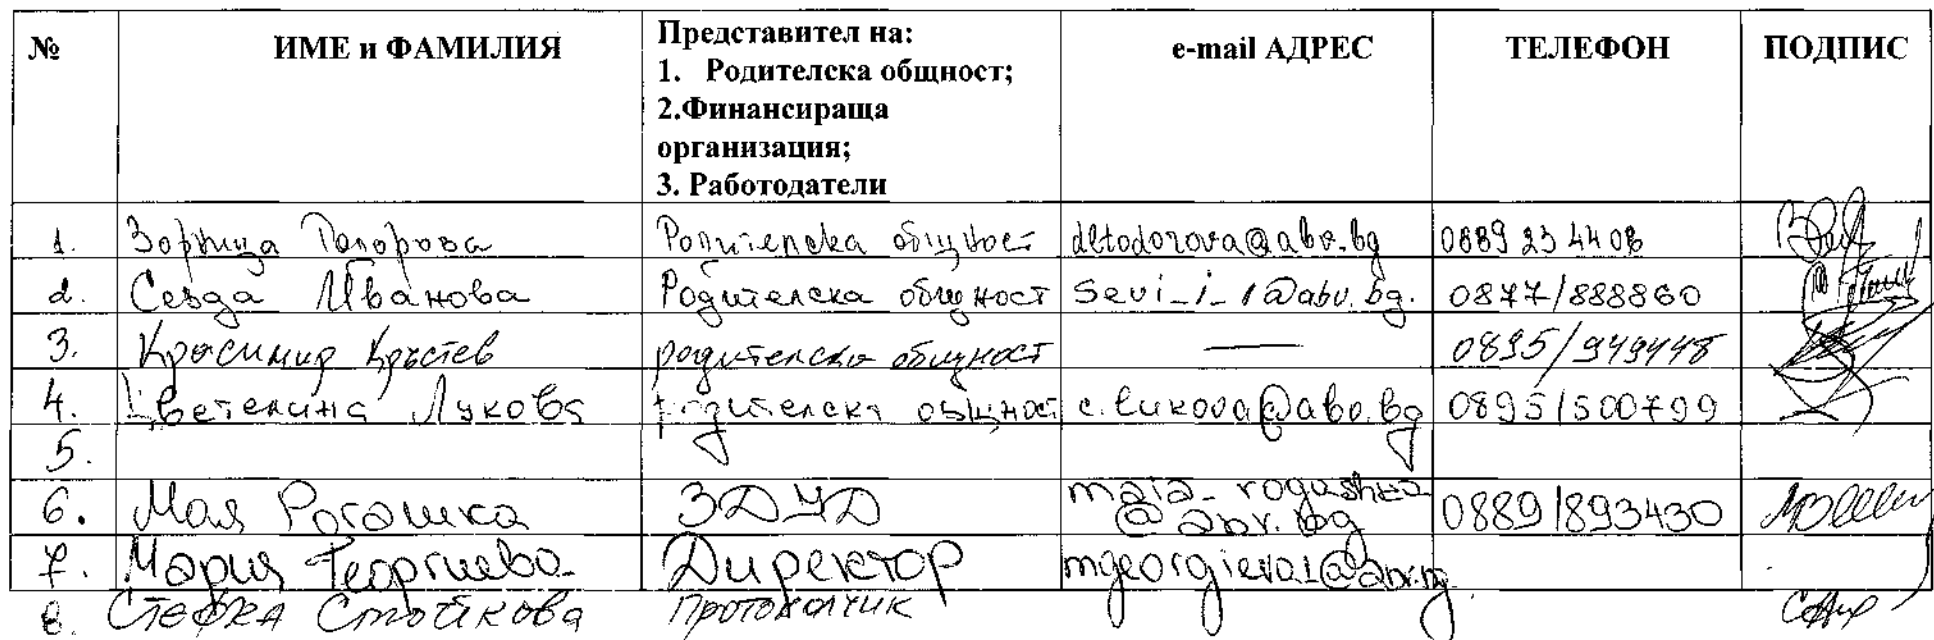 № ИМЕ и ФАМИЛИЯ Представител на: e-mail АДРЕС ТЕЛЕФОН ПОДПИС
1. Родителска общност;
2.Финансираща
организация;
3. Работодатели
1. Зорница Тодорова Родителска общност dltodorova@abv.bg 0889 23 44 08
2. Севда Иванова Родителска общност sevi_i_1@abv.bg. 0877/888860
3. Красимир Кръстев родителска общност — 0895/949448
4. Цветелина Лукова родителска общност c.lukova@abv.bg 0895/500799
5.
6. Мая Рогашка ЗДУД maia_rogashka 0889/893430
@abv.bg
7. Мария Георгиева Директор mgeorgieva1@abv.bg
8. Стефка Стойкова Протоколчик